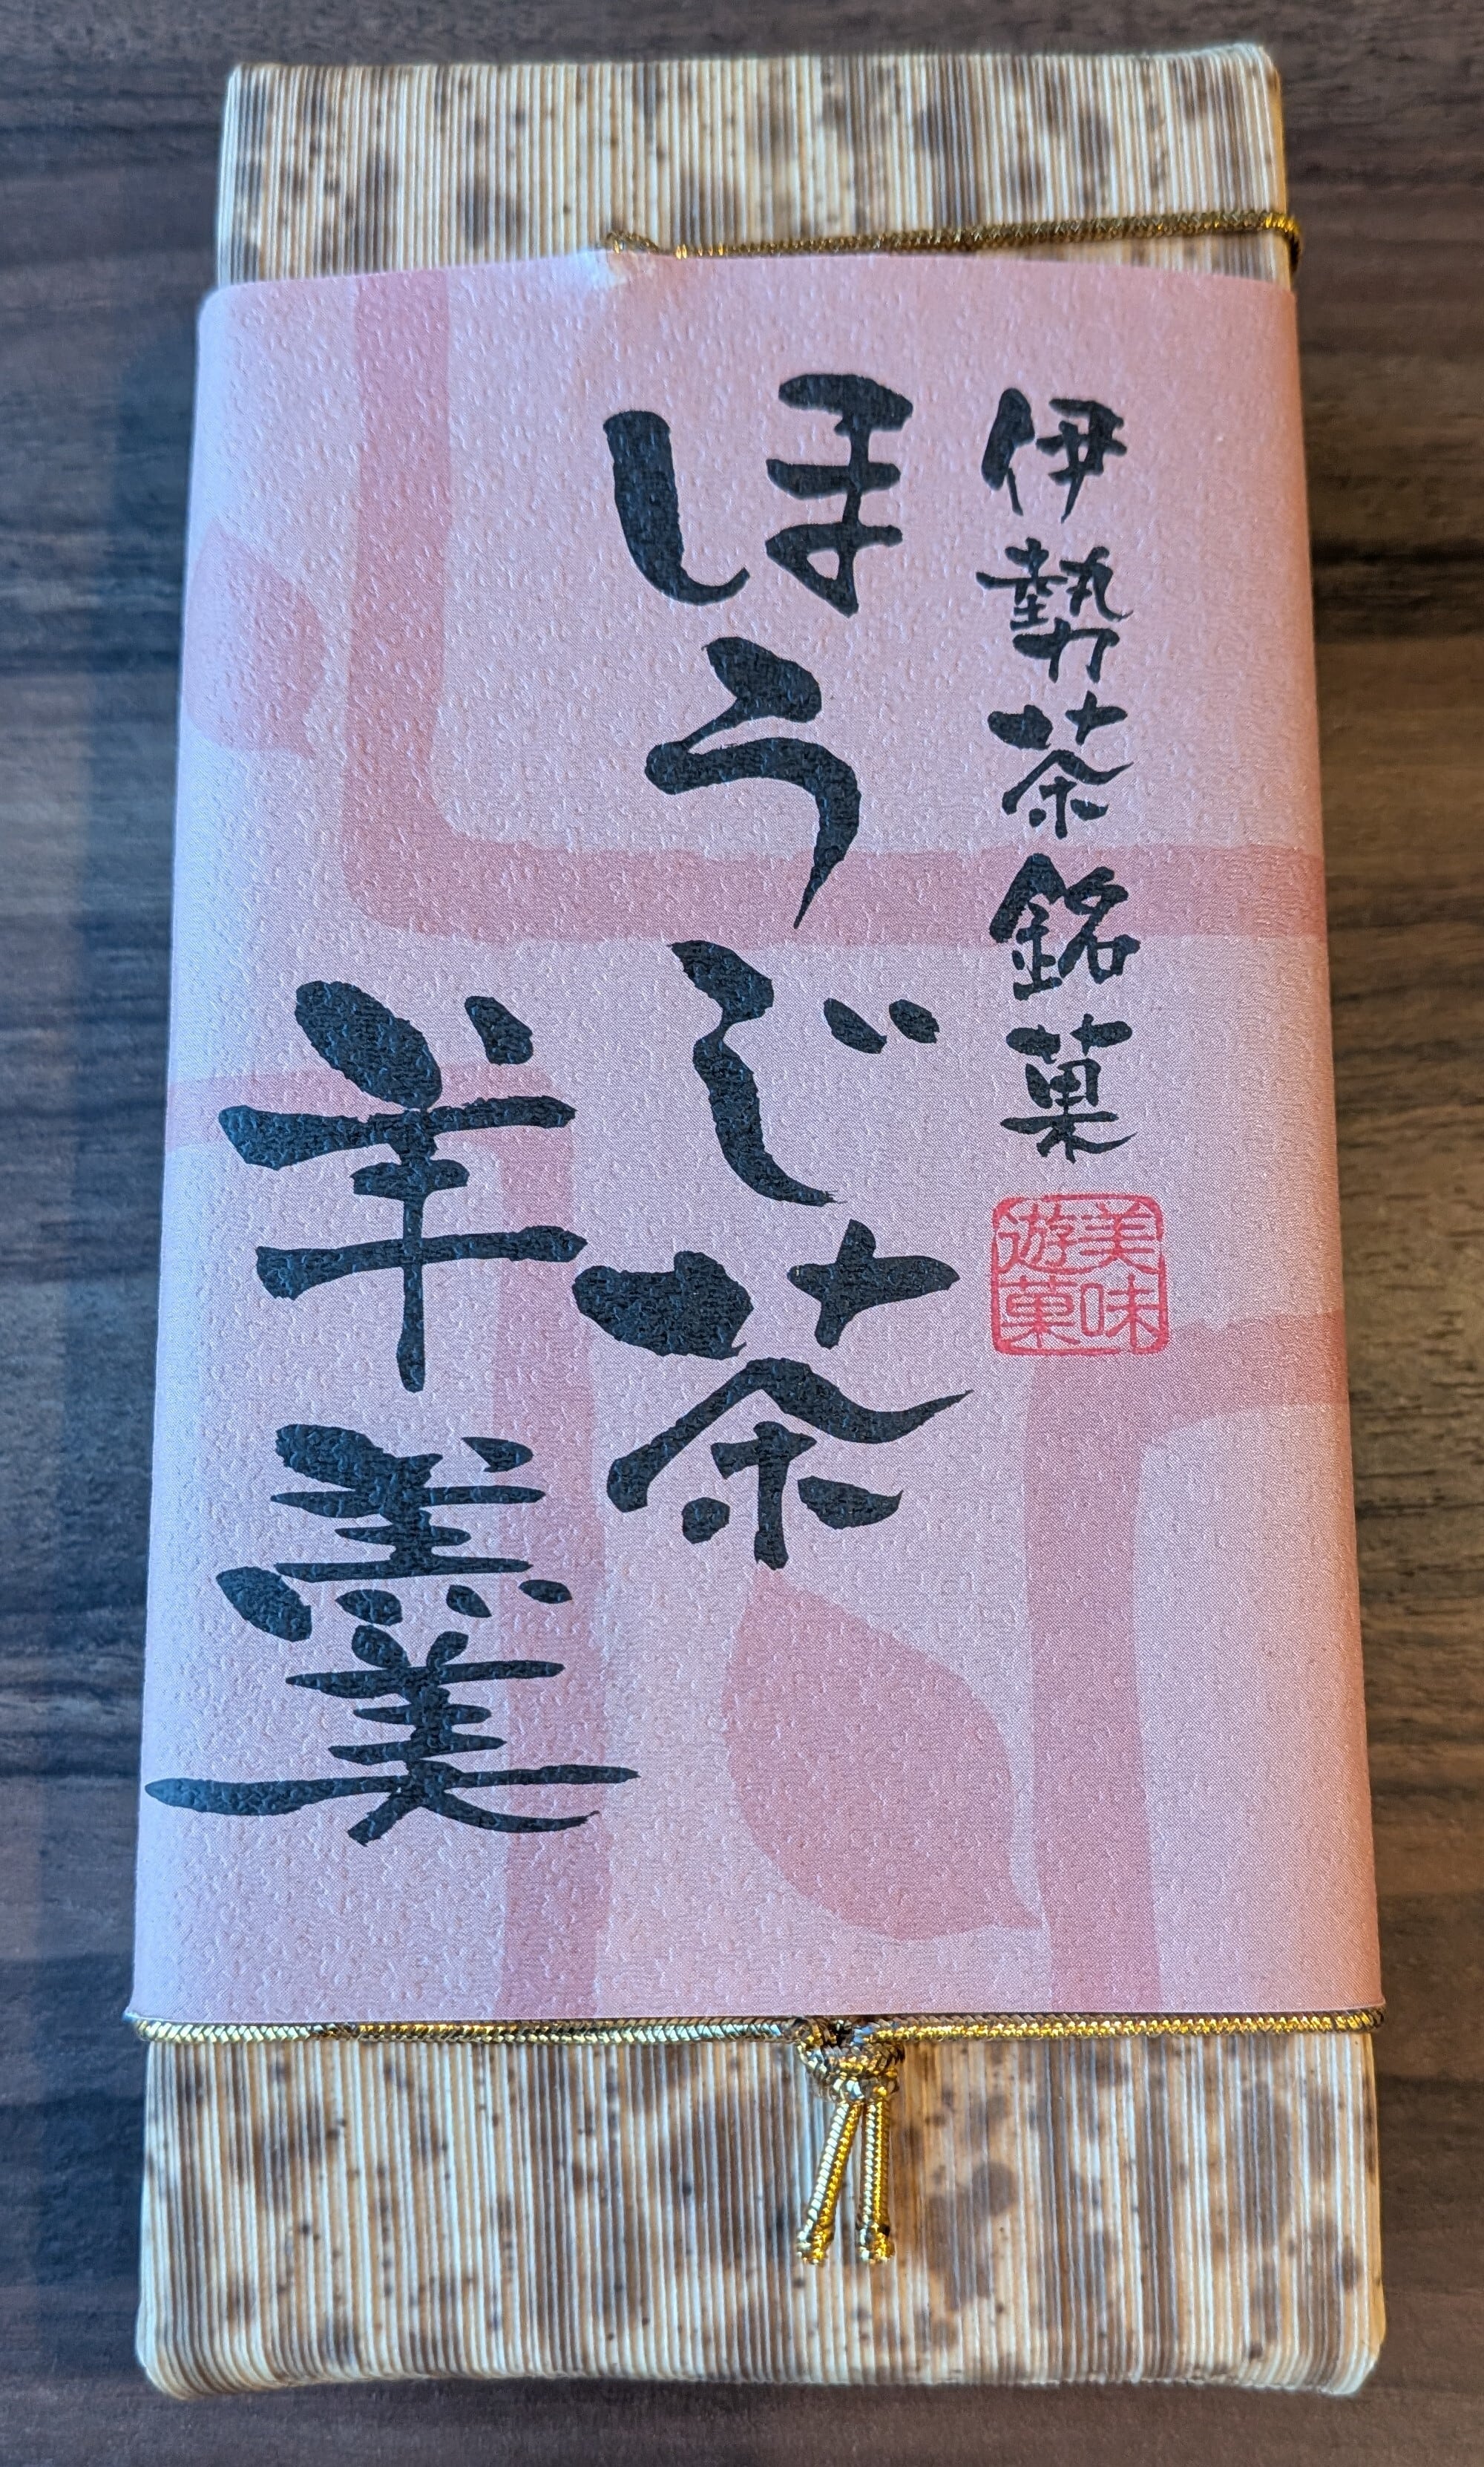 伊勢茶銘菓
美味
遊菓
ほうじ茶
羊羹